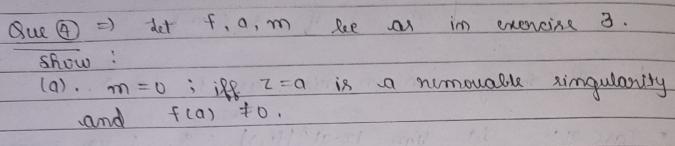 Que ④ => let f, a, m be as in exercise 3.
show :
(a). m = 0 ; iff z = a is a removable singularity
and f(a) ≠ 0.